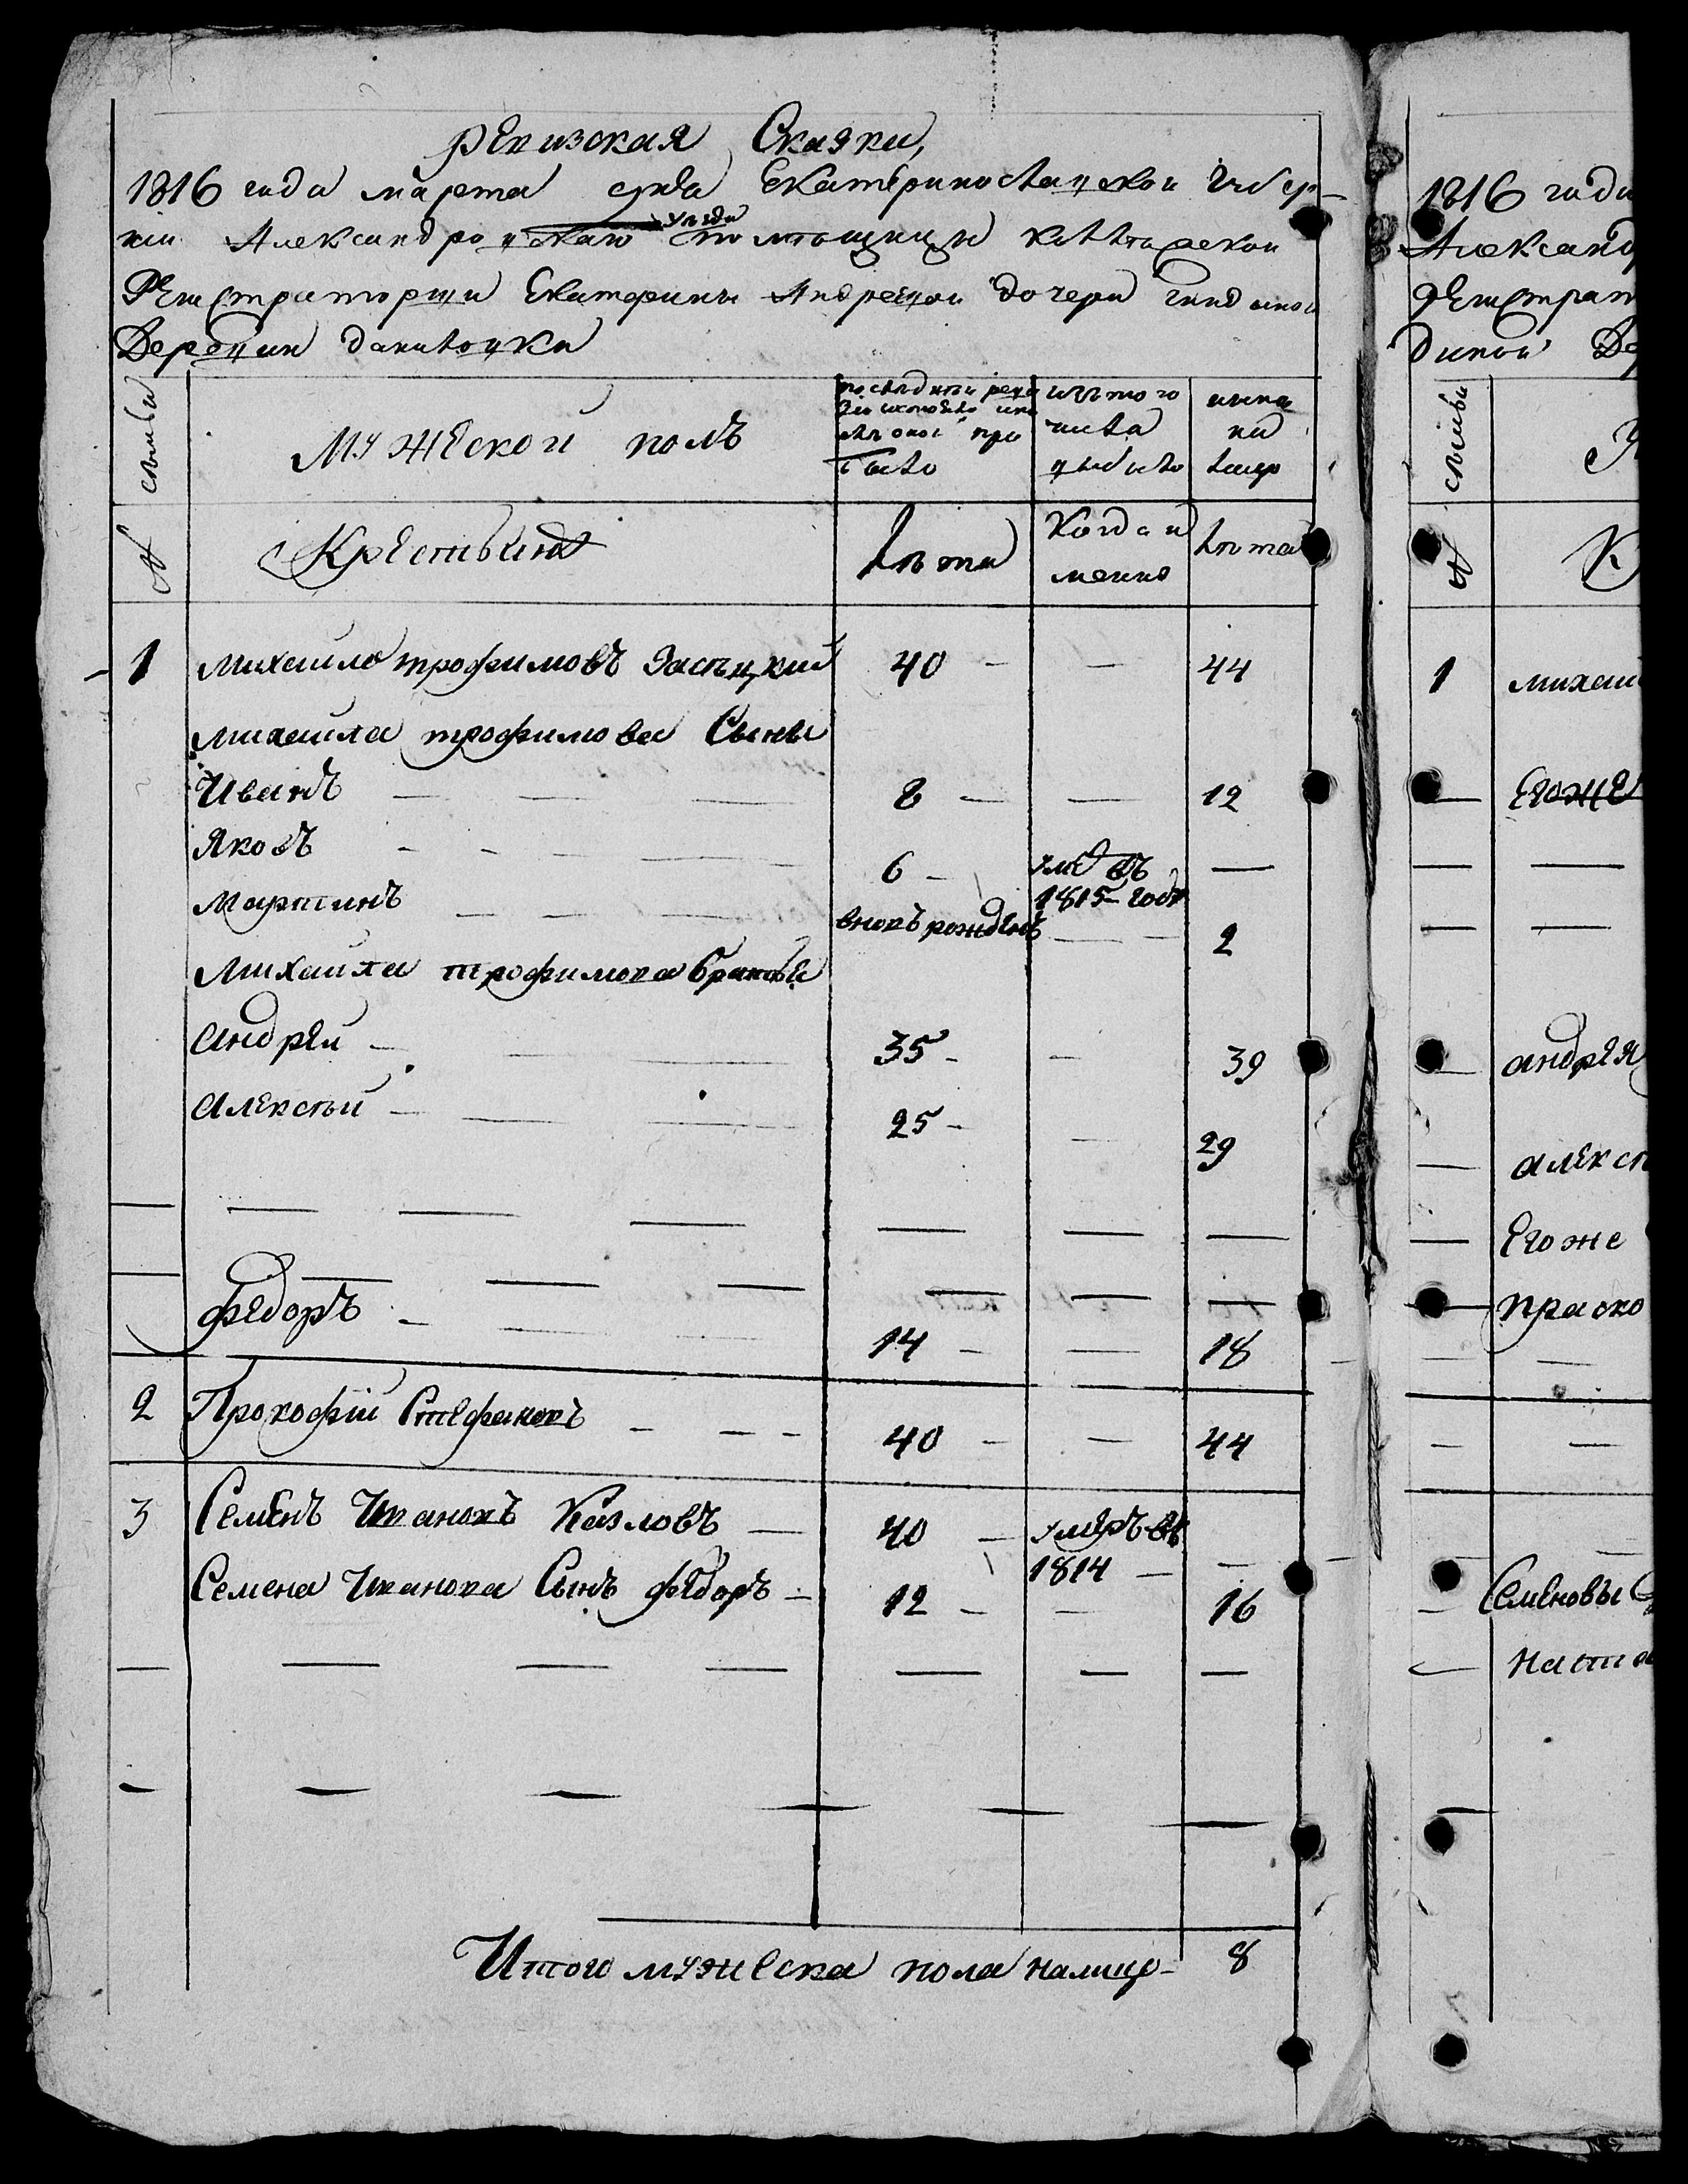 Ревизская Сказка,
1816 года марта дня Екатеринославской Губер-
нiи Александровскаго уезда помѣщицы коллежской
Регистраторши Екатерины Андреевой дочери
Деревни Даниловки
семьи
Мужеской полъ
последней реви
зiи состояло и
после оной при
было
изъ того
числа
выбыло
ныне
на
лицо
№
Крестьяня
Лѣта
Когда и
менно
Лѣта
1 Михайло трофимовъ 40 — — 44
Михайла трофимова Сыны
Иванъ — — — 8 — — 12
Яковъ — — — — 6 — умре въ —
1815 годѣ
Мартинъ — — — — вновъ рожденъ — — 2
Михайла трофимова братья
Андрей — — — 35 — — 39
Алексѣй — — — 25 — — 29
— — — — — — —
— — — — — — —
Федоръ — — — 14 — — 18
2 Прокофiй Стефановъ — — — 40 — — 44
3 Семенъ Ивановъ Казловъ — 40 — умеръ въ
1814 — —
Семена Иванова Сынъ Федоръ — 12 — — 16
— — — — — — —
— — — — — —
Итого мужеска пола налицо — 8
1816 года
Александ
Регистрат
диной Де
семьи
№
К
1 михай
— Егоже
— —
— —
— андрея
— алексѣ
— Егоже
— праско
— —
— —
— Семеновы
— Наста